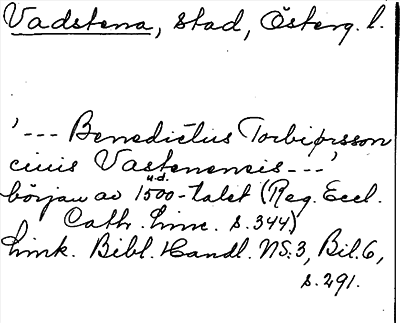 Vadstena, stad, Österg. l.
'--- Benedictus Torbiørsson
ciuis Vastenensis ---'
u.d.
början av 1500-talet (Reg. Eccl.
Cath. Linc. s. 344)
Link. Bibl. Handl. NS:3, Bil. 6,
s. 291.